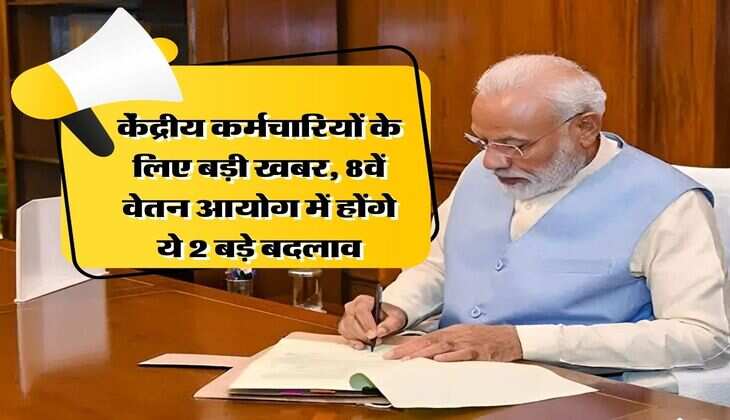 केंद्रीय कर्मचारियों के
लिए बड़ी खबर, 8वें
वेतन आयोग में होंगे
ये 2 बड़े बदलाव